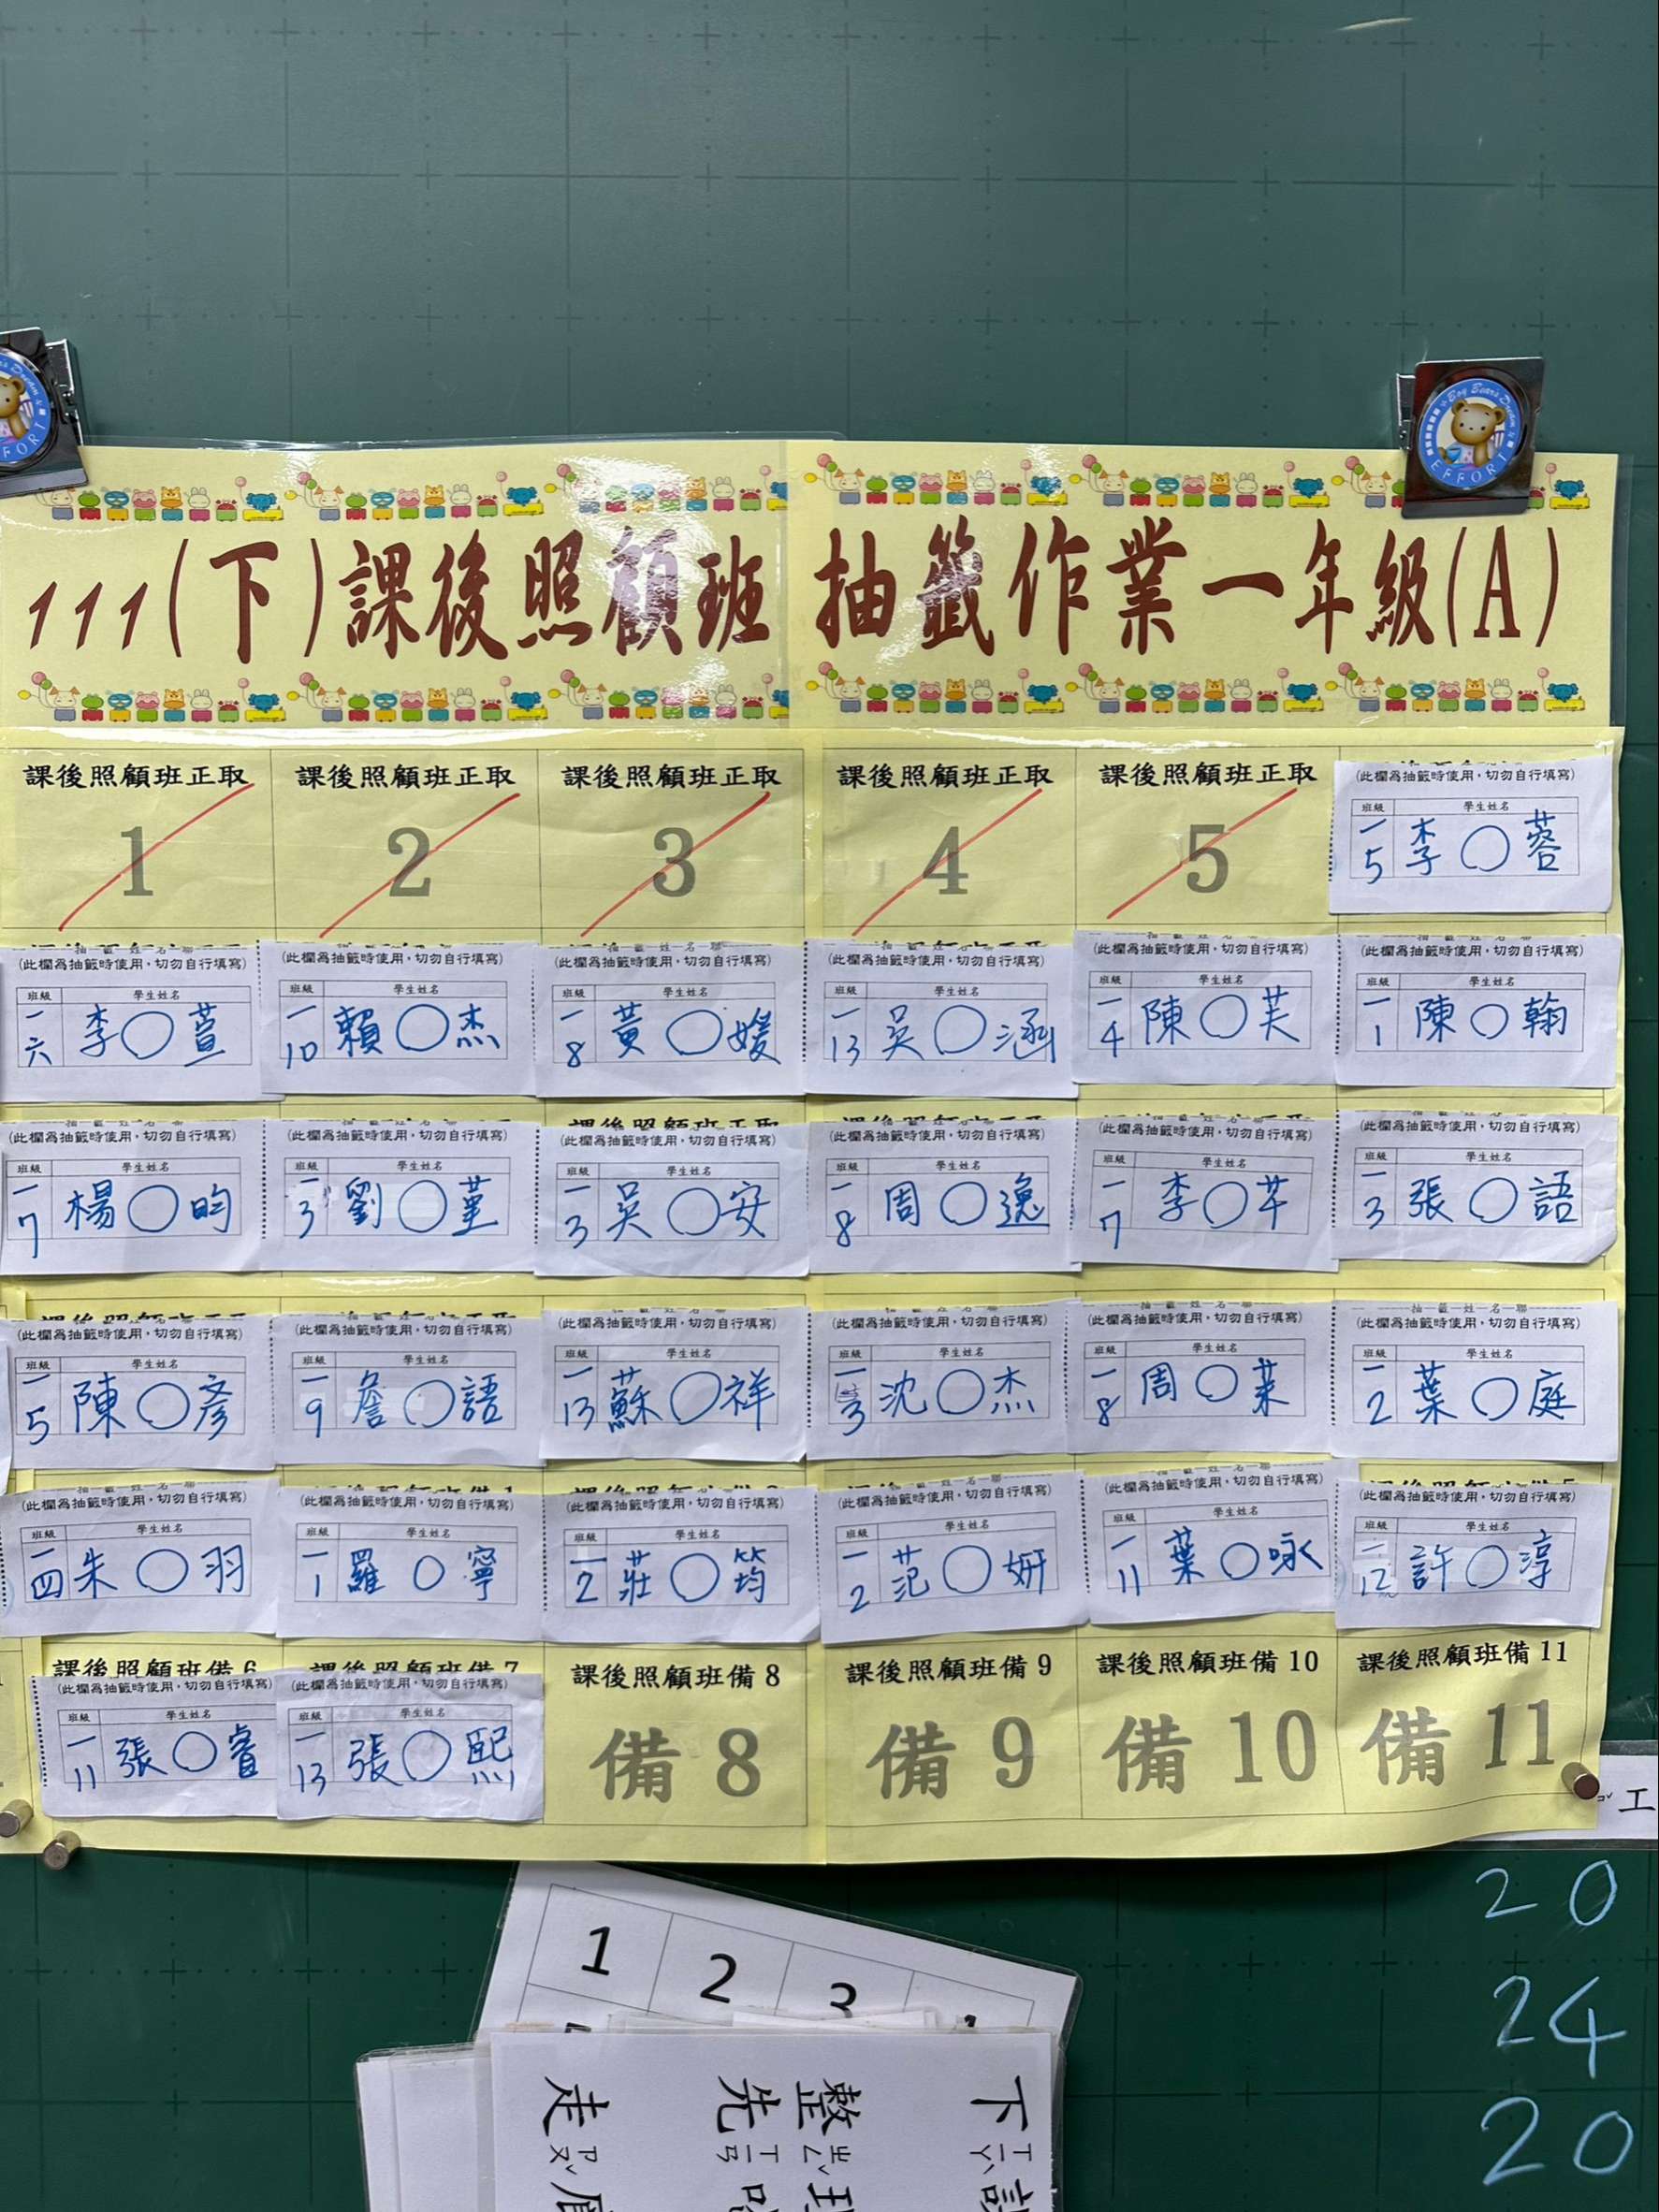 111(下)課後照顧班 抽籤作業一年級(A)
課後照顧班正取 課後照顧班正取 課後照顧班正取 課後照顧班正取 課後照顧班正取
1 2 3 4 5
(此欄為抽籤時使用,切勿自行填寫)
班級 學生姓名
一5 李○蓉
(此欄為抽籤時使用,切勿自行填寫)
班級 學生姓名
一六 李○萱
(此欄為抽籤時使用,切勿自行填寫)
班級 學生姓名
一10 賴○杰
(此欄為抽籤時使用,切勿自行填寫)
班級 學生姓名
一8 黃○媛
(此欄為抽籤時使用,切勿自行填寫)
班級 學生姓名
一13 吳○涵
(此欄為抽籤時使用,切勿自行填寫)
班級 學生姓名
一4 陳○芙
(此欄為抽籤時使用,切勿自行填寫)
班級 學生姓名
一1 陳○翰
(此欄為抽籤時使用,切勿自行填寫)
班級 學生姓名
一7 楊○昀
(此欄為抽籤時使用,切勿自行填寫)
班級 學生姓名
一3 劉○堇
(此欄為抽籤時使用,切勿自行填寫)
班級 學生姓名
一3 吳○安
(此欄為抽籤時使用,切勿自行填寫)
班級 學生姓名
一8 周○逸
(此欄為抽籤時使用,切勿自行填寫)
班級 學生姓名
一7 李○芊
(此欄為抽籤時使用,切勿自行填寫)
班級 學生姓名
一3 張○語
(此欄為抽籤時使用,切勿自行填寫)
班級 學生姓名
一5 陳○彥
(此欄為抽籤時使用,切勿自行填寫)
班級 學生姓名
一9 詹○語
(此欄為抽籤時使用,切勿自行填寫)
班級 學生姓名
一13 蘇○祥
(此欄為抽籤時使用,切勿自行填寫)
班級 學生姓名
一3 沈○杰
(此欄為抽籤時使用,切勿自行填寫)
班級 學生姓名
一8 周○菜
(此欄為抽籤時使用,切勿自行填寫)
班級 學生姓名
一2 葉○庭
(此欄為抽籤時使用,切勿自行填寫)
班級 學生姓名
一四 朱○羽
(此欄為抽籤時使用,切勿自行填寫)
班級 學生姓名
一1 羅○寧
(此欄為抽籤時使用,切勿自行填寫)
班級 學生姓名
一2 莊○筠
(此欄為抽籤時使用,切勿自行填寫)
班級 學生姓名
一2 范○妍
(此欄為抽籤時使用,切勿自行填寫)
班級 學生姓名
一11 葉○咏
(此欄為抽籤時使用,切勿自行填寫)
班級 學生姓名
一12 許○淳
課後照顧班備6
(此欄為抽籤時使用,切勿自行填寫)
班級 學生姓名
一11 張○睿
課後照顧班備7
(此欄為抽籤時使用,切勿自行填寫)
班級 學生姓名
一13 張○熙
課後照顧班備8
備 8
課後照顧班備9
備 9
課後照顧班備10
備 10
課後照顧班備11
備 11
工
20
24
20
1 2 3
下 整 先 走